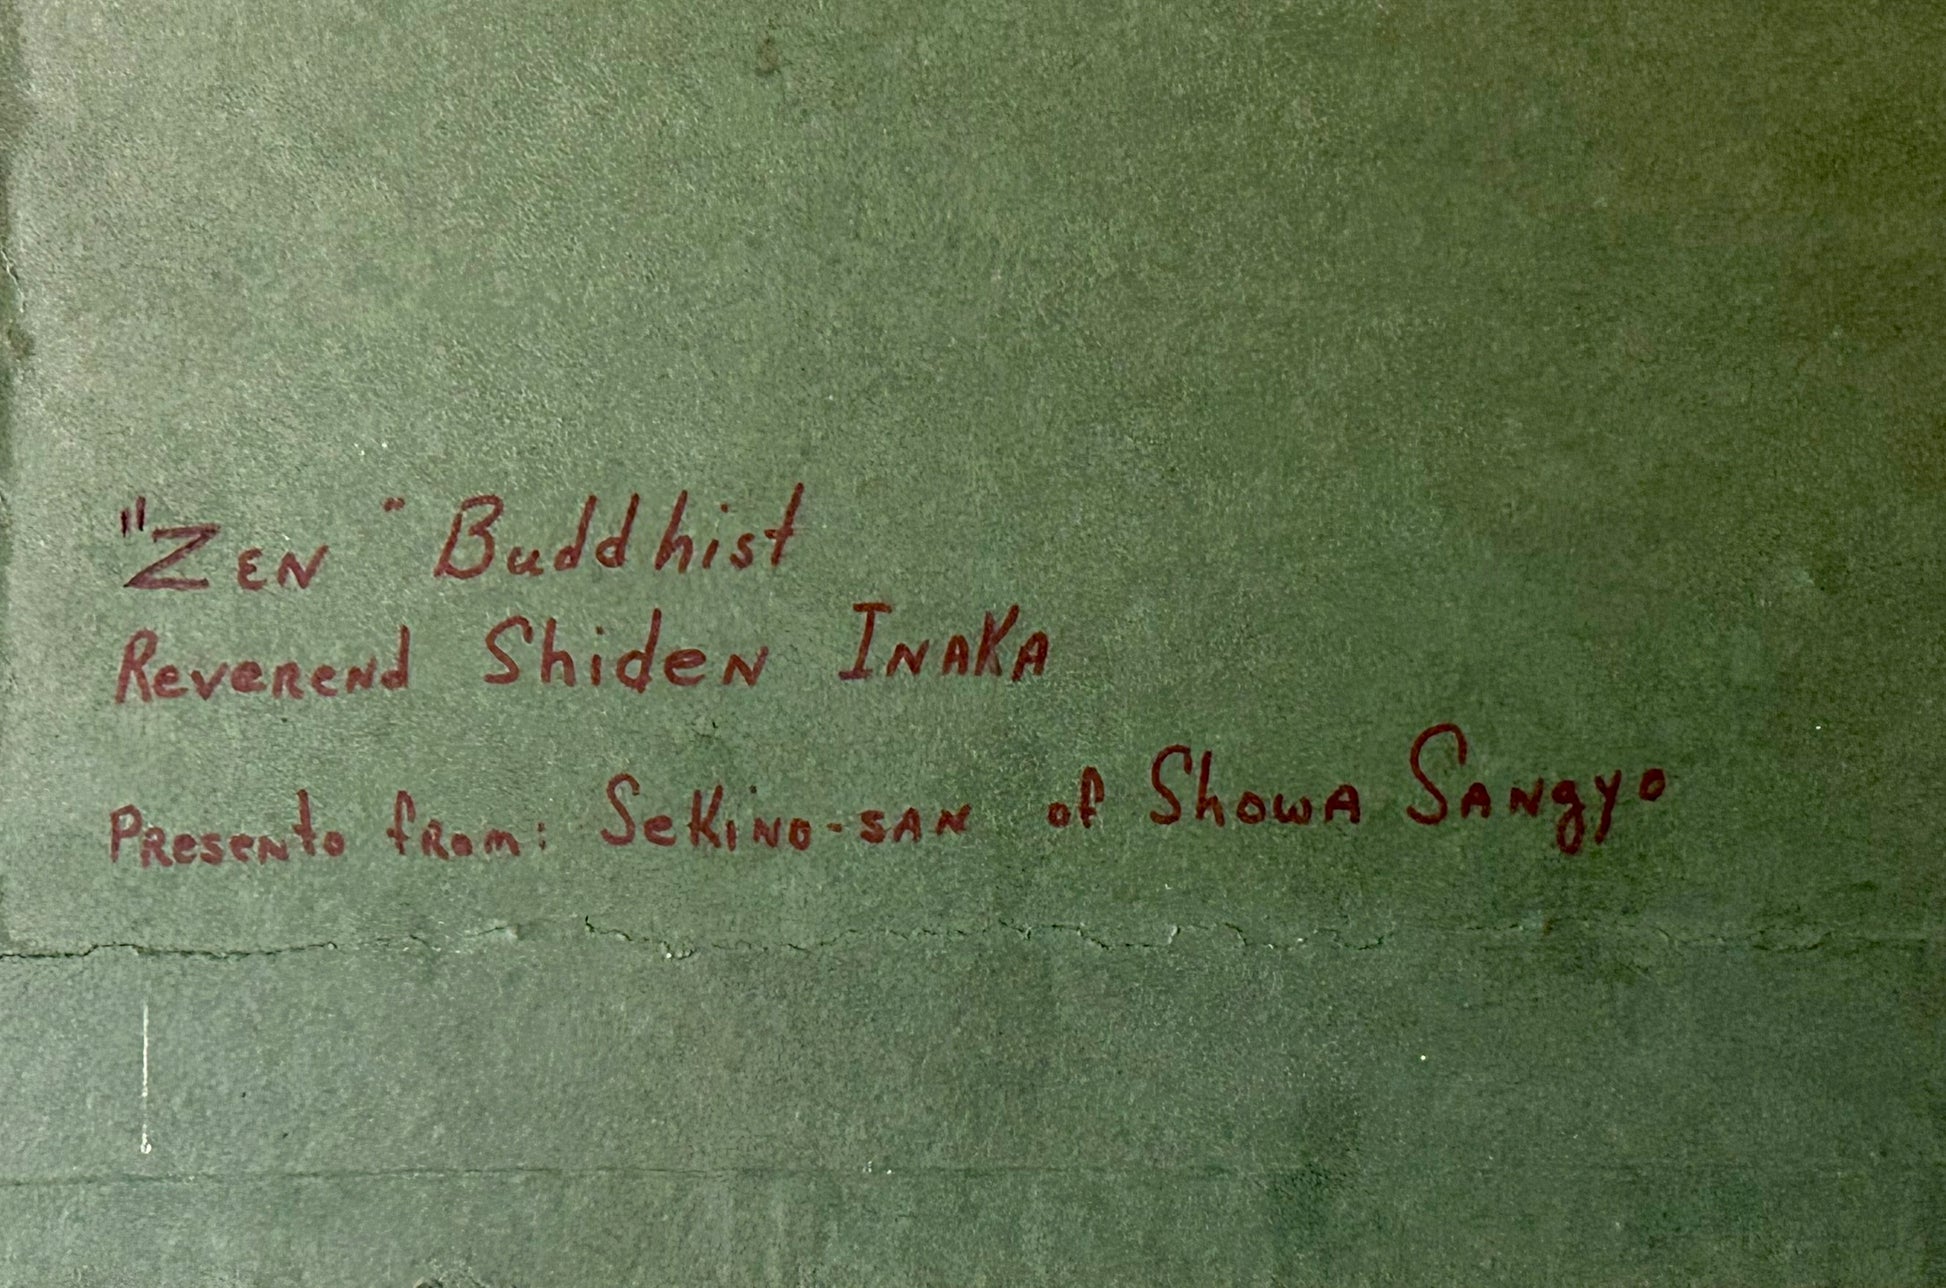 "Zen" Buddhist
Reverend Shiden Inaka
Presento from: Sekino-san of Showa Sangyo